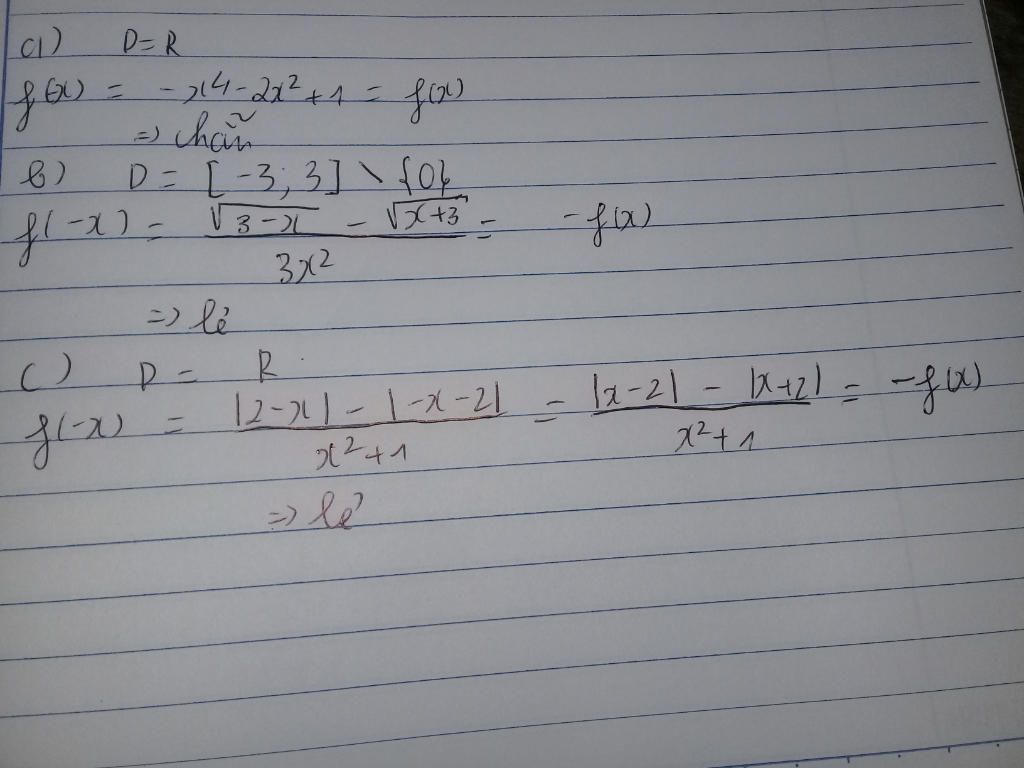 a) D=R
f(x) = -x⁴-2x²+1 = f(x)
=> chẵn
b) D = [-3; 3] \ {0}
f(-x) = (√(3-x) - √(x+3))/(3x²) = -f(x)
=> lẻ
c) D = R
f(-x) = (|2-x| - |-x-2|)/(x²+1) = (|x-2| - |x+2|)/(x²+1) = -f(x)
=> lẻ